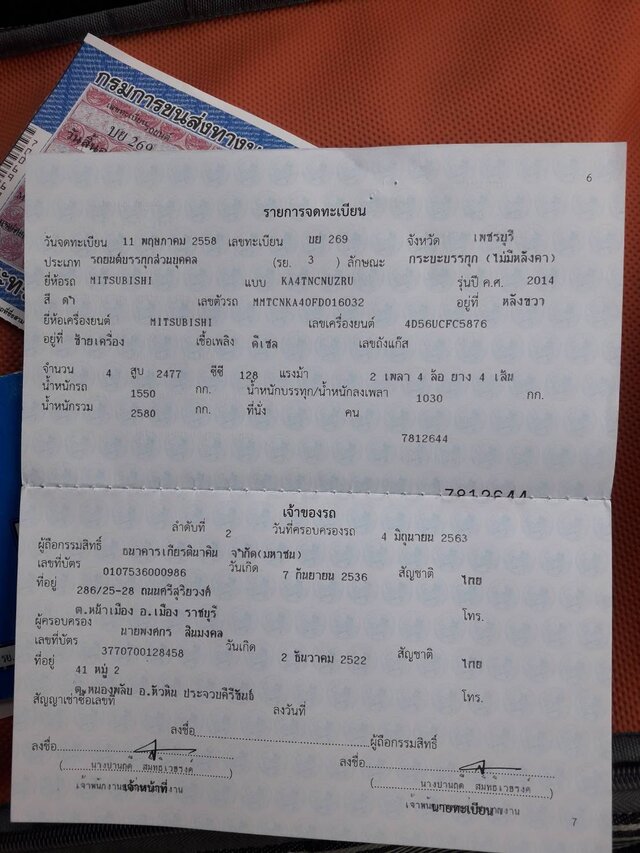 กรมการขนส่งทางบ
บย 269
วันสิ้นอ
6
รายการจดทะเบียน
วันจดทะเบียน 11 พฤษภาคม 2558 เลขทะเบียน บย 269 จังหวัด เพชรบุรี
ประเภท รถยนต์บรรทุกส่วนบุคคล (รย. 3 ) ลักษณะ กระบะบรรทุก (ไม่มีหลังคา)
ยี่ห้อรถ MITSUBISHI แบบ KA4TNCNUZRU รุ่นปี ค.ศ. 2014
สี ดำ เลขตัวรถ MMTCNKA40FD016032 อยู่ที่ หลังขวา
ยี่ห้อเครื่องยนต์ MITSUBISHI เลขเครื่องยนต์ 4D56UCFC5876
อยู่ที่ ซ้ายเครื่อง เชื้อเพลิง ดีเซล เลขถังแก๊ส
จำนวน 4 สูบ 2477 ซีซี 128 แรงม้า 2 เพลา 4 ล้อ ยาง 4 เส้น
น้ำหนักรถ 1550 กก. น้ำหนักบรรทุก/น้ำหนักลงเพลา 1030 กก.
น้ำหนักรวม 2580 กก. ที่นั่ง คน
7812644
7812644
เจ้าของรถ
ลำดับที่ 2 วันที่ครอบครองรถ 4 มิถุนายน 2563
ผู้ถือกรรมสิทธิ์ ธนาคารเกียรตินาคิน จำกัด(มหาชน)
เลขที่บัตร 0107536000986 วันเกิด 7 กันยายน 2536 สัญชาติ ไทย
ที่อยู่ 286/25-28 ถนนศรีสุริยวงศ์
ต.หน้าเมือง อ.เมือง ราชบุรี โทร.
ผู้ครอบครอง นายพงศกร สินมงคล
เลขที่บัตร 3770700128458 วันเกิด 2 ธันวาคม 2522 สัญชาติ ไทย
ที่อยู่ 41 หมู่ 2
ต.หนองพลับ อ.หัวหิน ประจวบคีรีขันธ์ โทร.
สัญญาเช่าซื้อเลขที่ ลงวันที่
ลงชื่อ ผู้ถือกรรมสิทธิ์
ลงชื่อ ลงชื่อ
(นางปานฤดี สมทธิเวชรงค์) (นางปานฤดี สมทธิเวชรงค์)
เจ้าหน้าที่ นายทะเบียน
7